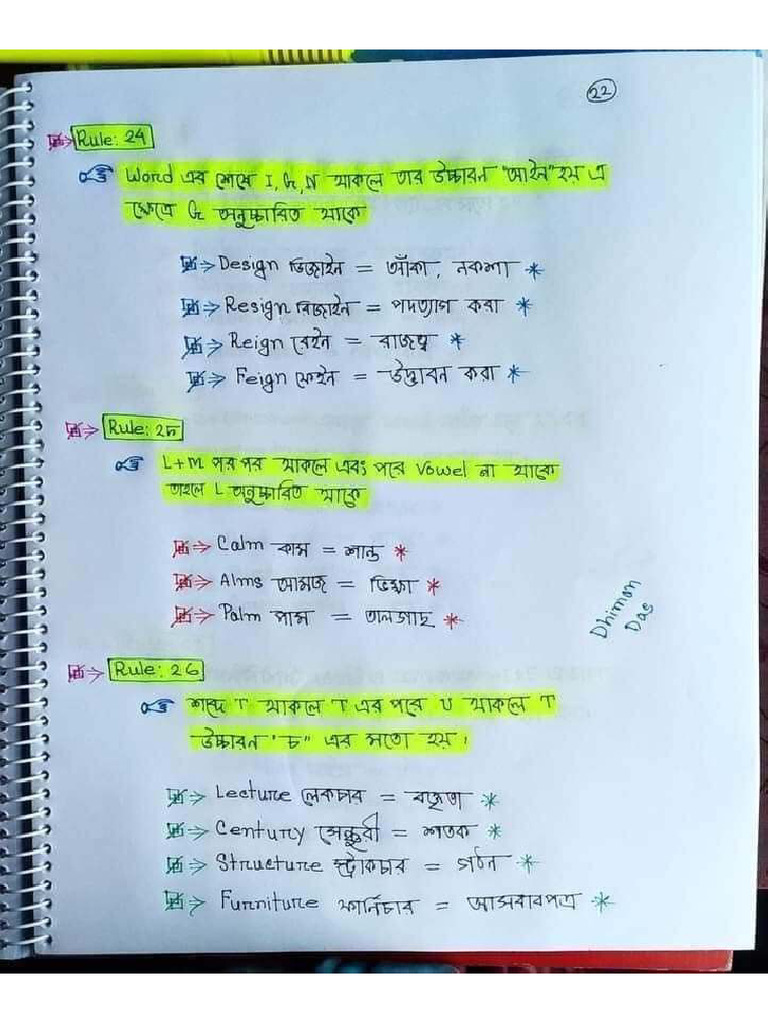 22
Rule: 24
Word এর শেষে I, G, N থাকলে তার উচ্চারন "আইন" হয় এ
ক্ষেত্রে G অনুচ্চারিত থাকে
Design ডিজাইন = আঁকা, নকশা *
Resign রিজাইন = পদত্যাগ করা *
Reign রেইন = রাজত্ব *
Feign ফেইন = উদ্ভাবন করা *
Rule: 25
L+M পর পর থাকলে এবং পরে Vowel না থাকে
তাহলে L অনুচ্চারিত থাকে
Calm কাম = শান্ত *
Alms আমজ = ভিক্ষা *
Palm পাম = তালগাছ *
Dhimon
Das
Rule: 26
শব্দে T থাকলে T এর পরে U থাকলে T
উচ্চারন "চ" এর মতো হয়।
Lecture লেকচার = বক্তৃতা *
Century সেঞ্চুরী = শতক *
Structure স্ট্রাকচার = গঠন *
Furniture ফার্নিচার = আসবাবপত্র *